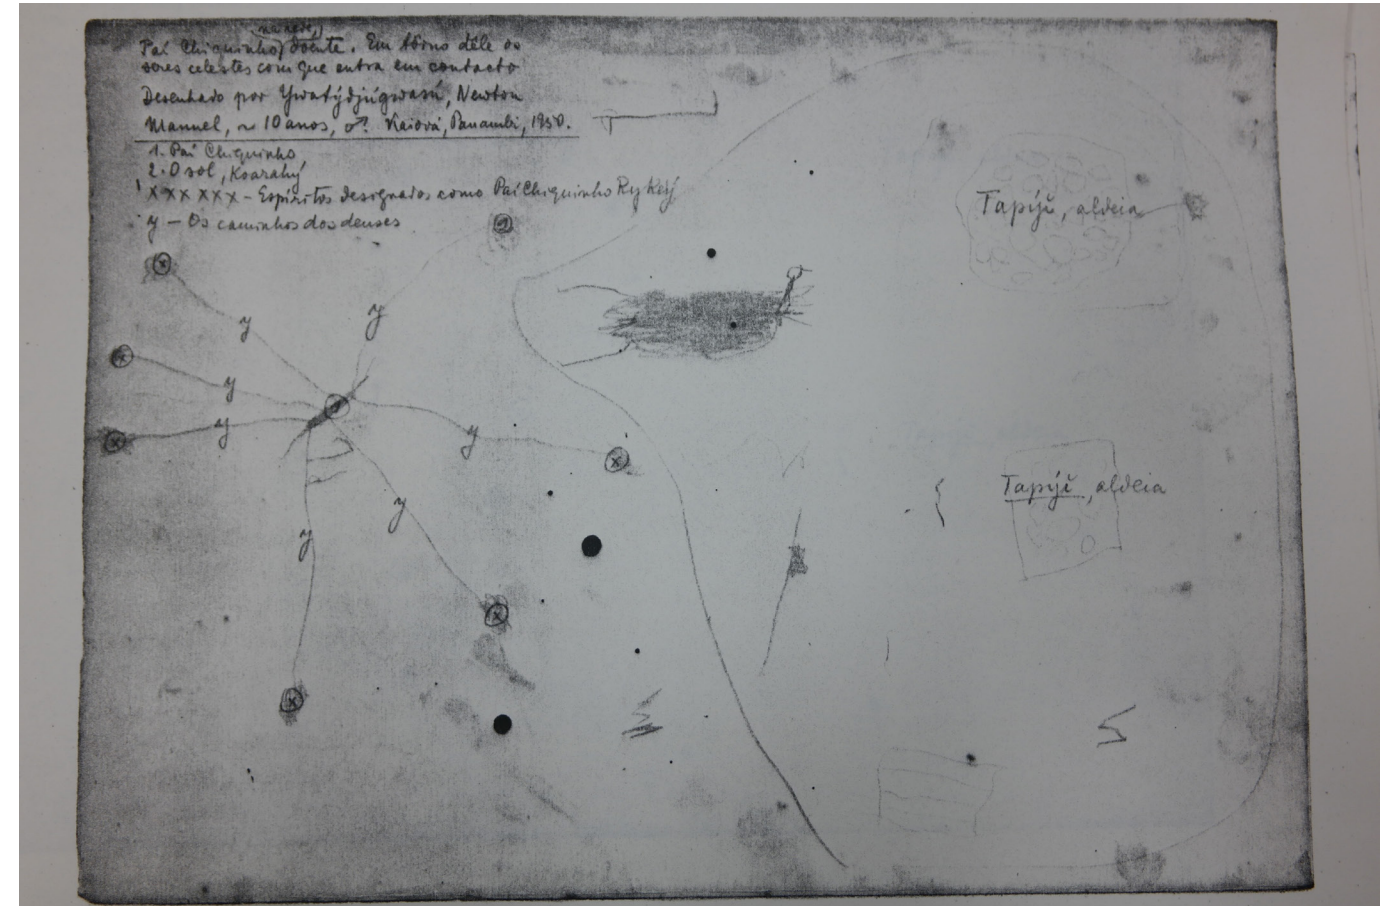 Paí Chiquinho, doente. Em tôrno dêle os
seres celestes com que entra em contacto
Desenhado por Ywatýdjúgwasú, Newton
Manuel, ~ 10 anos, ♂. Kaiová, Panambi, 1950.
1. Paí Chiquinho
2. O sol, Kwarahý
x x x x x x – Espíritos designados como Paí Chiquinho Ry Keý
y – Os caminhos dos deuses
Tapýi, aldeia
2
x
y
y
x
y
1
y
y
x
x
y
Tapýi, aldeia
y
x
x